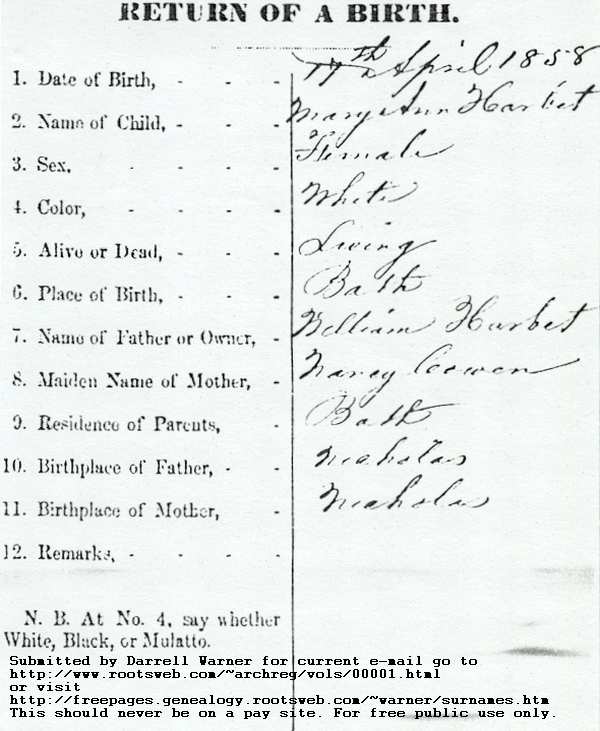 RETURN OF A BIRTH.
1. Date of Birth, - - - 17th April 1858
2. Name of Child, - - - Mary Ann Harbet
3. Sex, - - - - Female
4. Color, - - - - White
5. Alive or Dead, - - - Living
6. Place of Birth, - - - Bath
7. Name of Father or Owner, - William Harbet
8. Maiden Name of Mother, - Nancy Cowen
9. Residence of Parents, - Bath
10. Birthplace of Father, - - Nicholas
11. Birthplace of Mother, - Nicholas
12. Remarks, - - - -
N. B. At No. 4, say whether
White, Black, or Mulatto.
Submitted by Darrell Warner for current e-mail go to
http://www.rootsweb.com/~archreg/vols/00001.html
or visit
http://freepages.genealogy.rootsweb.com/~warner/surnames.htm
This should never be on a pay site. For free public use only.